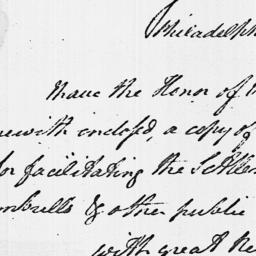 Philadelph
have the Honor of
ewith enclosed, a copy of
for facilitating the Settlem
& other public
with great Re